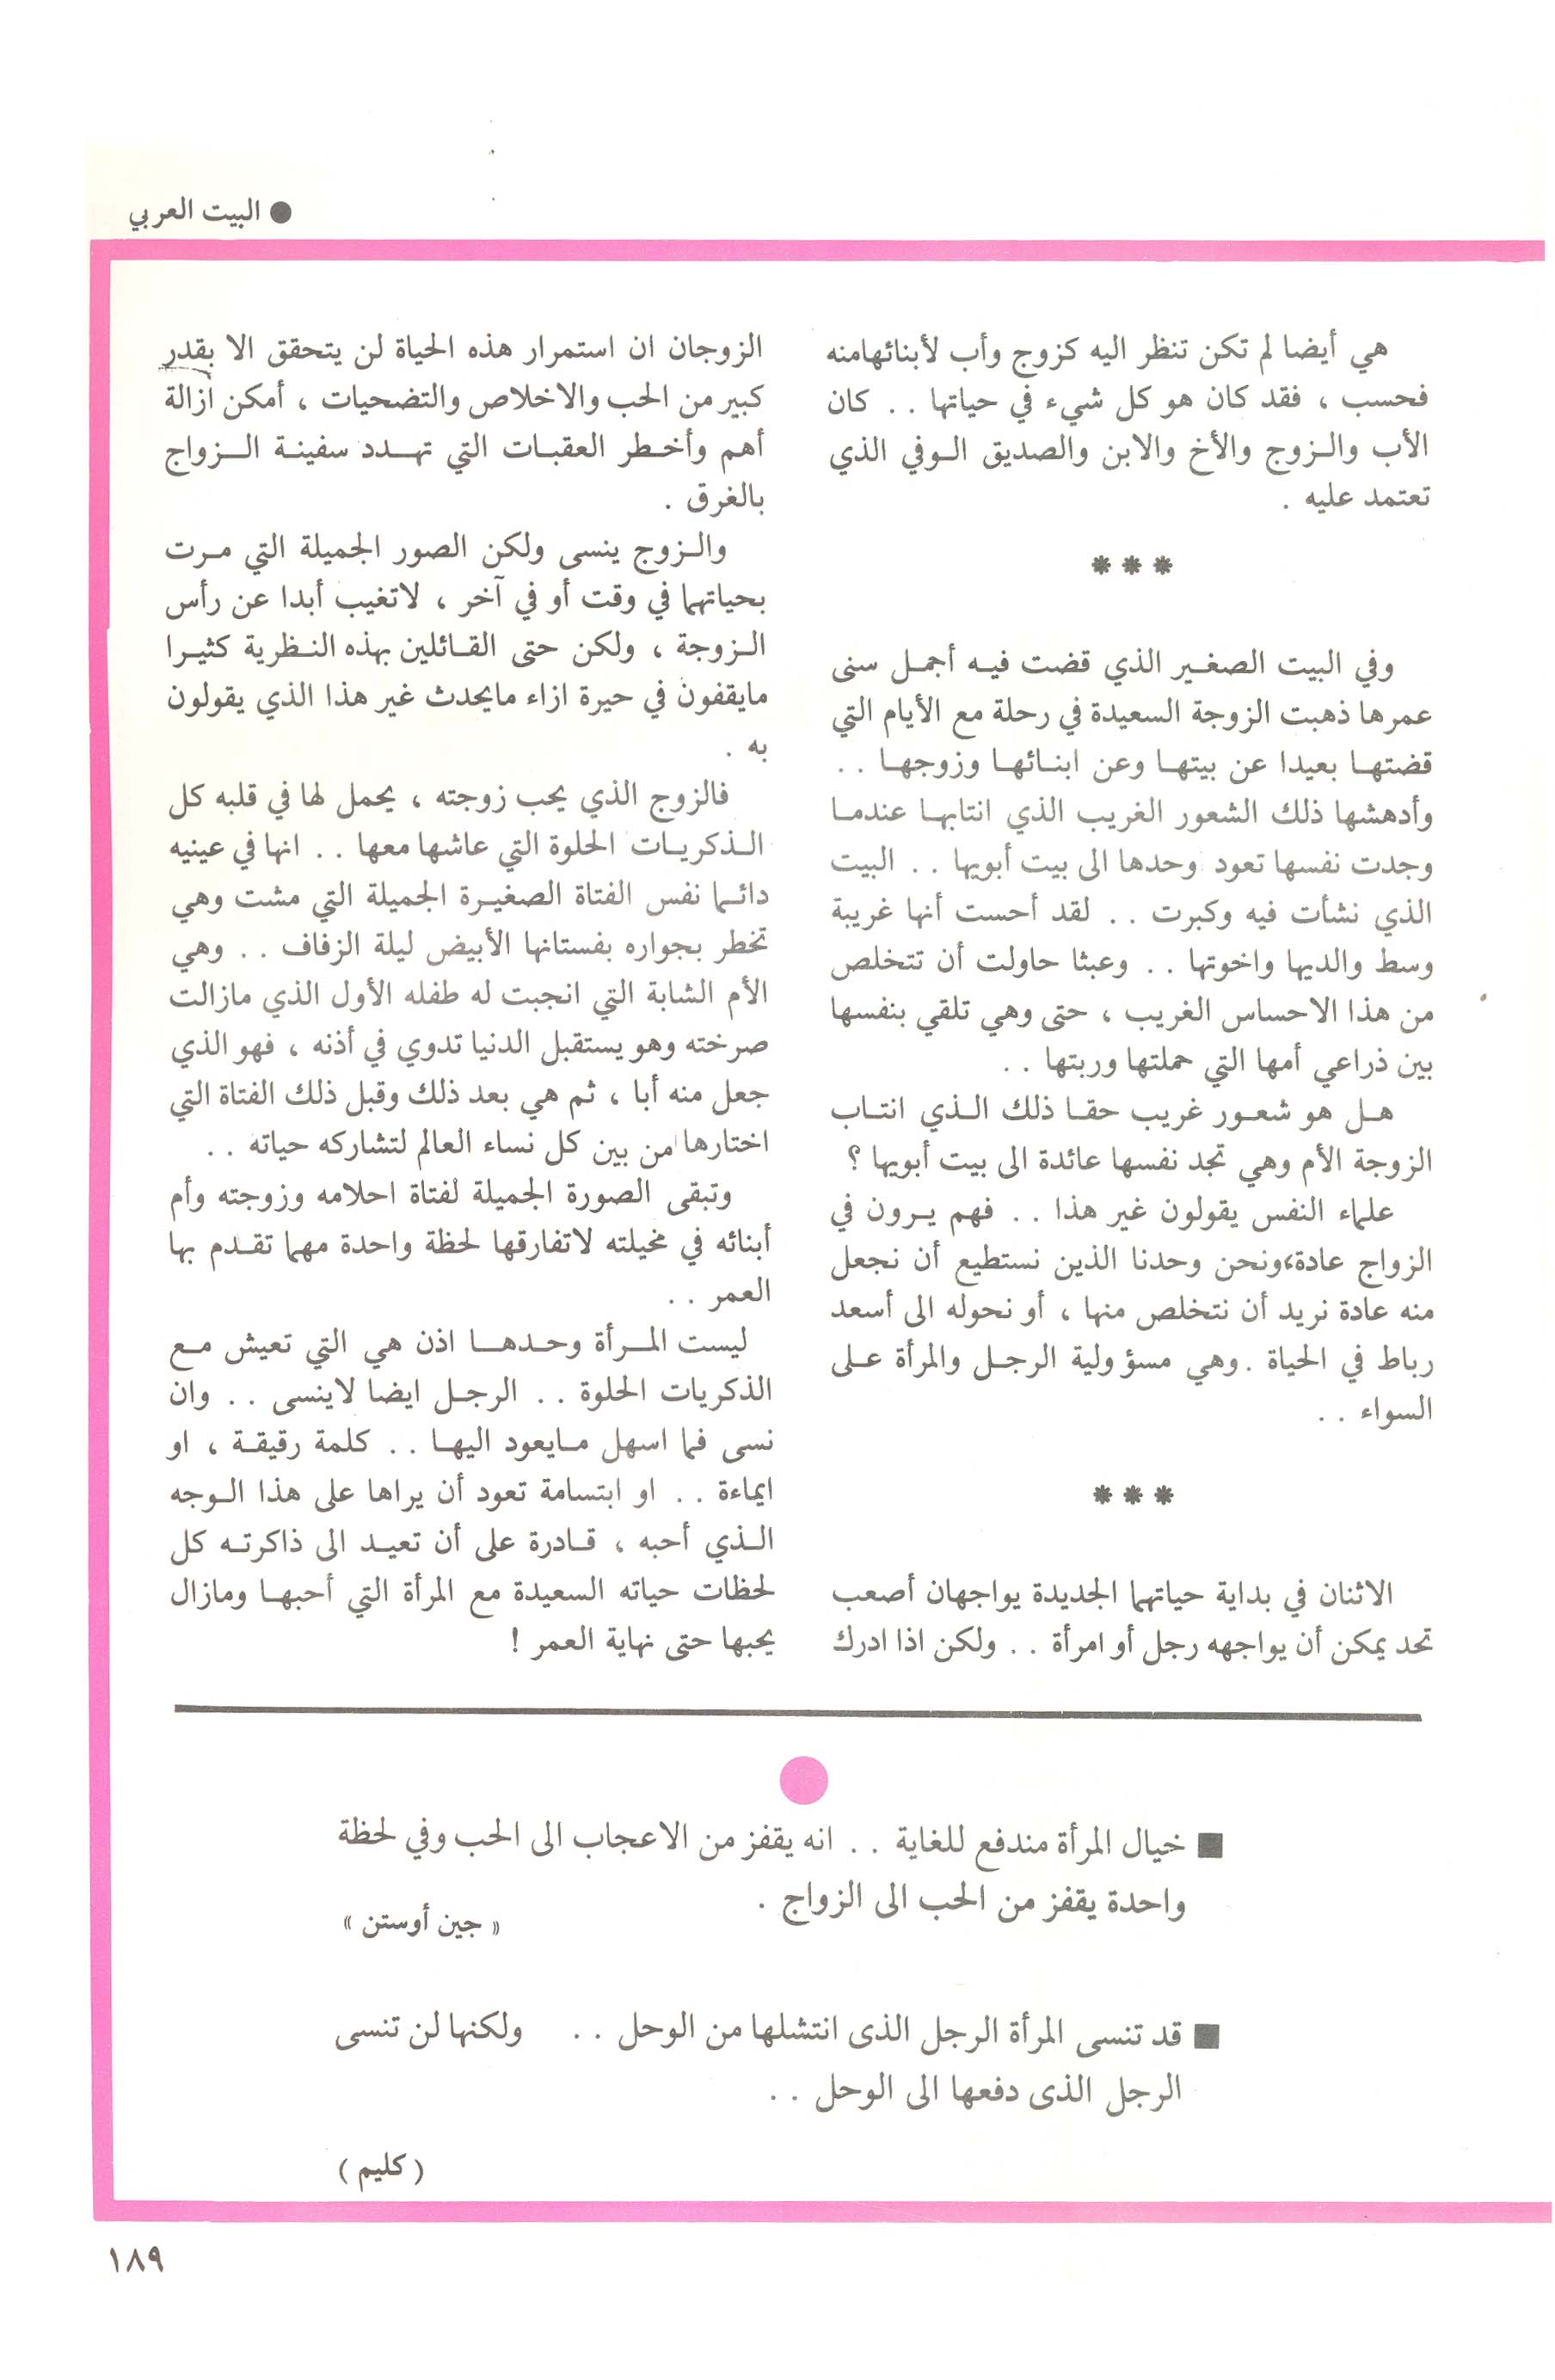 ● البيت العربي
هي أيضا لم تكن تنظر اليه كزوج وأب لأبنائهامنه
فحسب ، فقد كان هو كل شيء في حياتها . . كان
الأب والـزوج والأخ والابن والصديق الـوفي الذي
تعتمد عليه .
* * *
وفي البيت الصغـير الذي قضت فيـه أجمـل سنى
عمرها ذهبت الزوجة السعيدة في رحلة مع الأيام التي
قضتهـا بعيدا عن بيتهـا وعن ابنـائهـا وزوجهـا . .
وأدهشها ذلك الشعور الغريب الذي انتابهـا عندمـا
وجدت نفسها تعود وحدها الى بيت أبويها . . البيت
الذي نشأت فيه وكبرت . . لقد أحست أنها غريبة
وسط والديها واخوتها . . وعبثا حاولت أن تتخلص
من هذا الاحساس الغريب ، حتى وهي تلقي بنفسها
بين ذراعي أمها التي حملتها وربتها . .
هـل هو شعـور غريب حقـا ذلك الـذي انتـاب
الزوجة الأم وهي تجد نفسها عائدة الى بيت أبويها ؟
علماء النفس يقولون غير هذا . . فهم يـرون في
الزواج عادة،ونحن وحدنا الذين نستطيع أن نجعل
منه عادة نريد أن نتخلص منها ، أو نحوله الى أسعد
رباط في الحياة . وهي مسؤولية الرجـل والمرأة عـلى
السواء . .
* * *
الاثنان في بداية حياتهما الجديدة يواجهان أصعب
تحد يمكن أن يواجهه رجل أو امرأة . . ولكن اذا ادرك
الزوجان ان استمرار هذه الحياة لن يتحقق الا بقدر
كبير من الحب والاخلاص والتضحيات ، أمكن ازالة
أهم وأخـطر العقبـات التي تهـدد سفينـة الـزواج
بالغرق .
والـزوج ينسى ولكن الصور الجميلة التي مـرت
بحياتهما في وقت أو في آخر ، لاتغيب أبدا عن رأس
الـزوجة ، ولكن حتى القـائلين بهذه النـظرية كثيـرا
مايقفون في حيرة ازاء مايحدث غير هذا الذي يقولون
به .
فالزوج الذي يحب زوجته ، يحمل لها في قلبه كل
الـذكريـات الحلوة التي عاشها معها . . انها في عينيه
دائـما نفس الفتاة الصغيـرة الجميلة التي مشت وهي
تخطر بجواره بفستانها الأبيض ليلة الزفاف . . وهي
الأم الشابة التي انجبت له طفله الأول الذي مازالت
صرخته وهو يستقبل الدنيا تدوي في أذنه ، فهو الذي
جعل منه أبا ، ثم هي بعد ذلك وقبل ذلك الفتاة التي
اختارها من بين كل نساء العالم لتشاركه حياته . .
وتبقى الصورة الجميلة لفتاة احلامه وزوجته وأم
أبنائه في مخيلته لاتفارقها لحظة واحدة مهما تقـدم بها
العمر . .
ليست المـرأة وحـدهـا اذن هي التي تعيش مـع
الذكريات الحلوة . . الرجـل ايضا لاينسى . . وان
نسى فما اسهل مـايعود اليهـا . . كلمة رقيقـة ، او
ايماءة . . او ابتسامة تعود أن يراها على هذا الـوجه
الـذي أحبه ، قـادرة على أن تعيـد الى ذاكرتـه كل
لحظات حياته السعيدة مع المرأة التي أحبهـا ومازال
يحبها حتى نهاية العمر !
■ خيال المرأة مندفع للغاية . . انه يقفز من الاعجاب الى الحب وفي لحظة
واحدة يقفز من الحب الى الزواج .
« جين أوستن »
■ قد تنسى المرأة الرجل الذى انتشلها من الوحل . . ولكنها لن تنسى
الرجل الذى دفعها الى الوحل . .
( كليم )
١٨٩